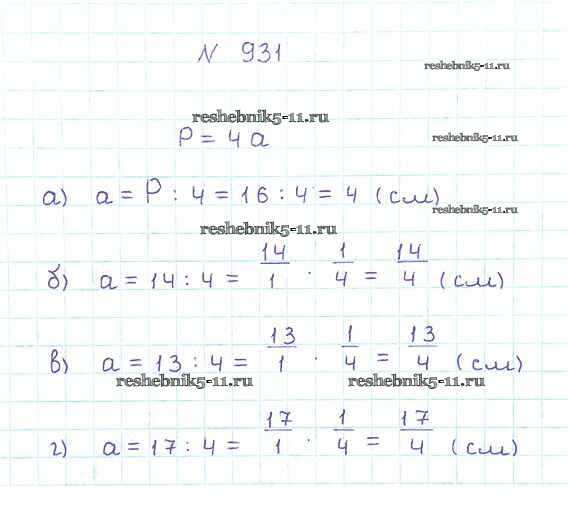 N 931
reshebnik5-11.ru
reshebnik5-11.ru
P = 4a
reshebnik5-11.ru
а) a = P : 4 = 16 : 4 = 4 (см)
reshebnik5-11.ru
reshebnik5-11.ru
б) a = 14 : 4 = 14/1 · 1/4 = 14/4 (см)
в) a = 13 : 4 = 13/1 · 1/4 = 13/4 (см)
reshebnik5-11.ru reshebnik5-11.ru
г) a = 17 : 4 = 17/1 · 1/4 = 17/4 (см)